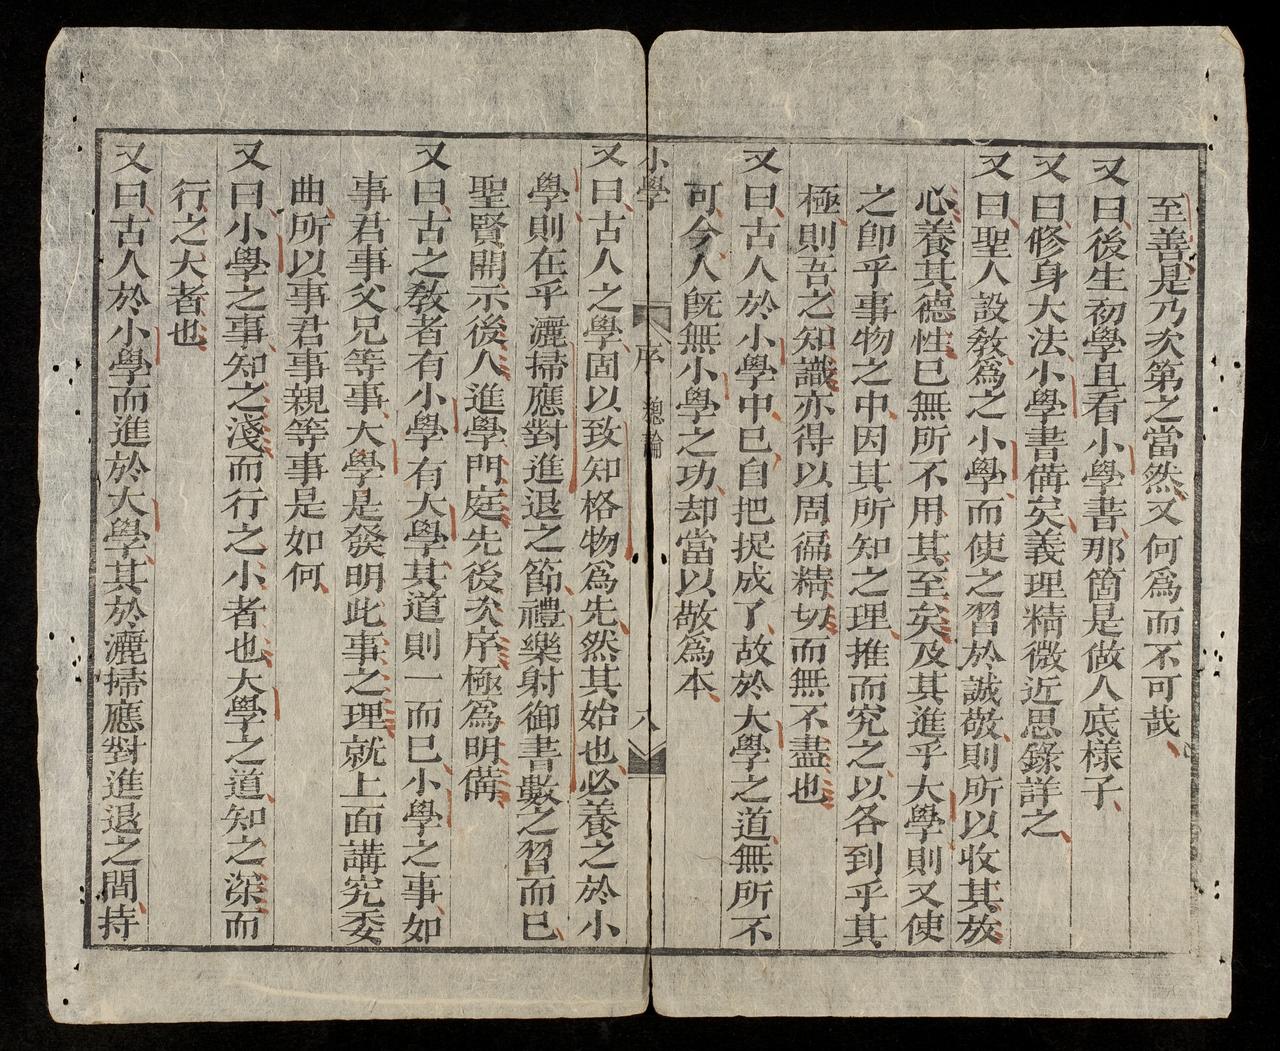 至善是乃次第之當然又何爲而不可哉
又曰後生初學且看小學書那箇是做人底樣子
又曰修身大法小學書備矣義理精微近思錄詳之
又曰聖人設敎爲之小學而使之習於誠敬則所以收其放
心養其德性已無所不用其至矣及其進乎大學則又使
之卽乎事物之中因其所知之理推而究之以各到乎其
極則吾之知識亦得以周徧精切而無不盡也
又曰古人於小學中已自把捉成了故於大學之道無所不
可今人旣無小學之功却當以敬爲本
小學 序 總論 八
又曰古人之學固以致知格物爲先然其始也必養之於小
學則在乎灑掃應對進退之節禮樂射御書數之習而已
聖賢開示後人進學門庭先後次序極爲明備
又曰古之敎者有小學有大學其道則一而已小學之事如
事君事父兄等事大學是發明此事之理就上面講究委
曲所以事君事親等事是如何
又曰小學之事知之淺而行之小者也大學之道知之深而
行之大者也
又曰古人於小學而進於大學其於灑掃應對進退之間持